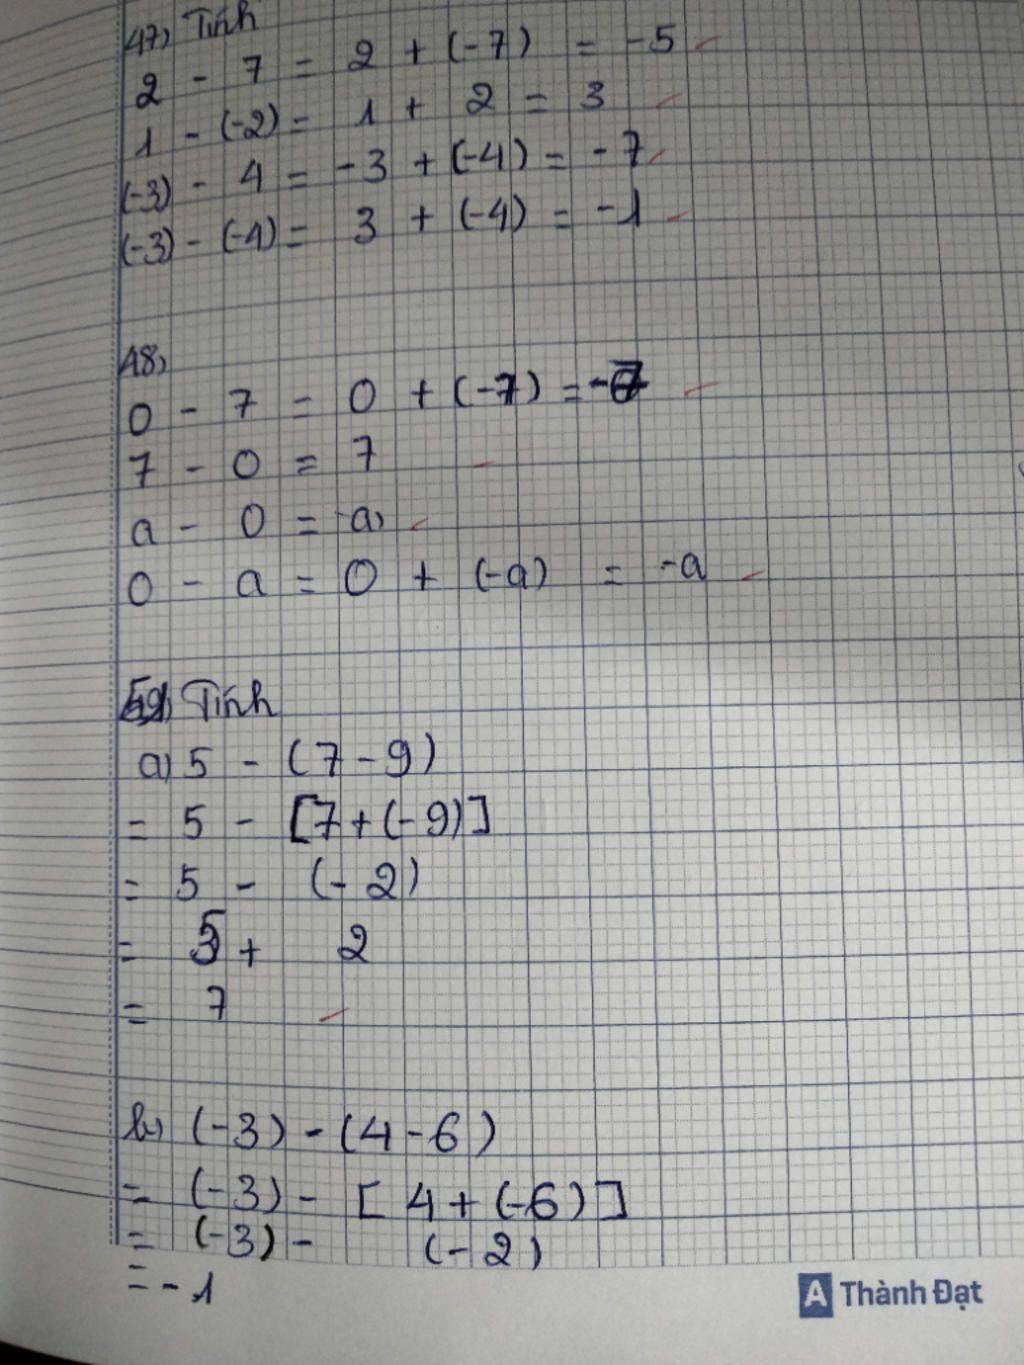 47) Tính
2 - 7 = 2 + (-7) = -5
1 - (-2) = 1 + 2 = 3
(-3) - 4 = -3 + (-4) = -7
(-3) - (-4) = 3 + (-4) = -1
48)
0 - 7 = 0 + (-7) = -7
7 - 0 = 7
a - 0 = a
0 - a = 0 + (-a) = -a
Tính
a) 5 - (7 - 9)
= 5 - [7 + (-9)]
= 5 - (-2)
= 5 + 2
= 7
b) (-3) - (4 - 6)
= (-3) - [4 + (-6)]
= (-3) - (-2)
= -1
A Thành Đạt